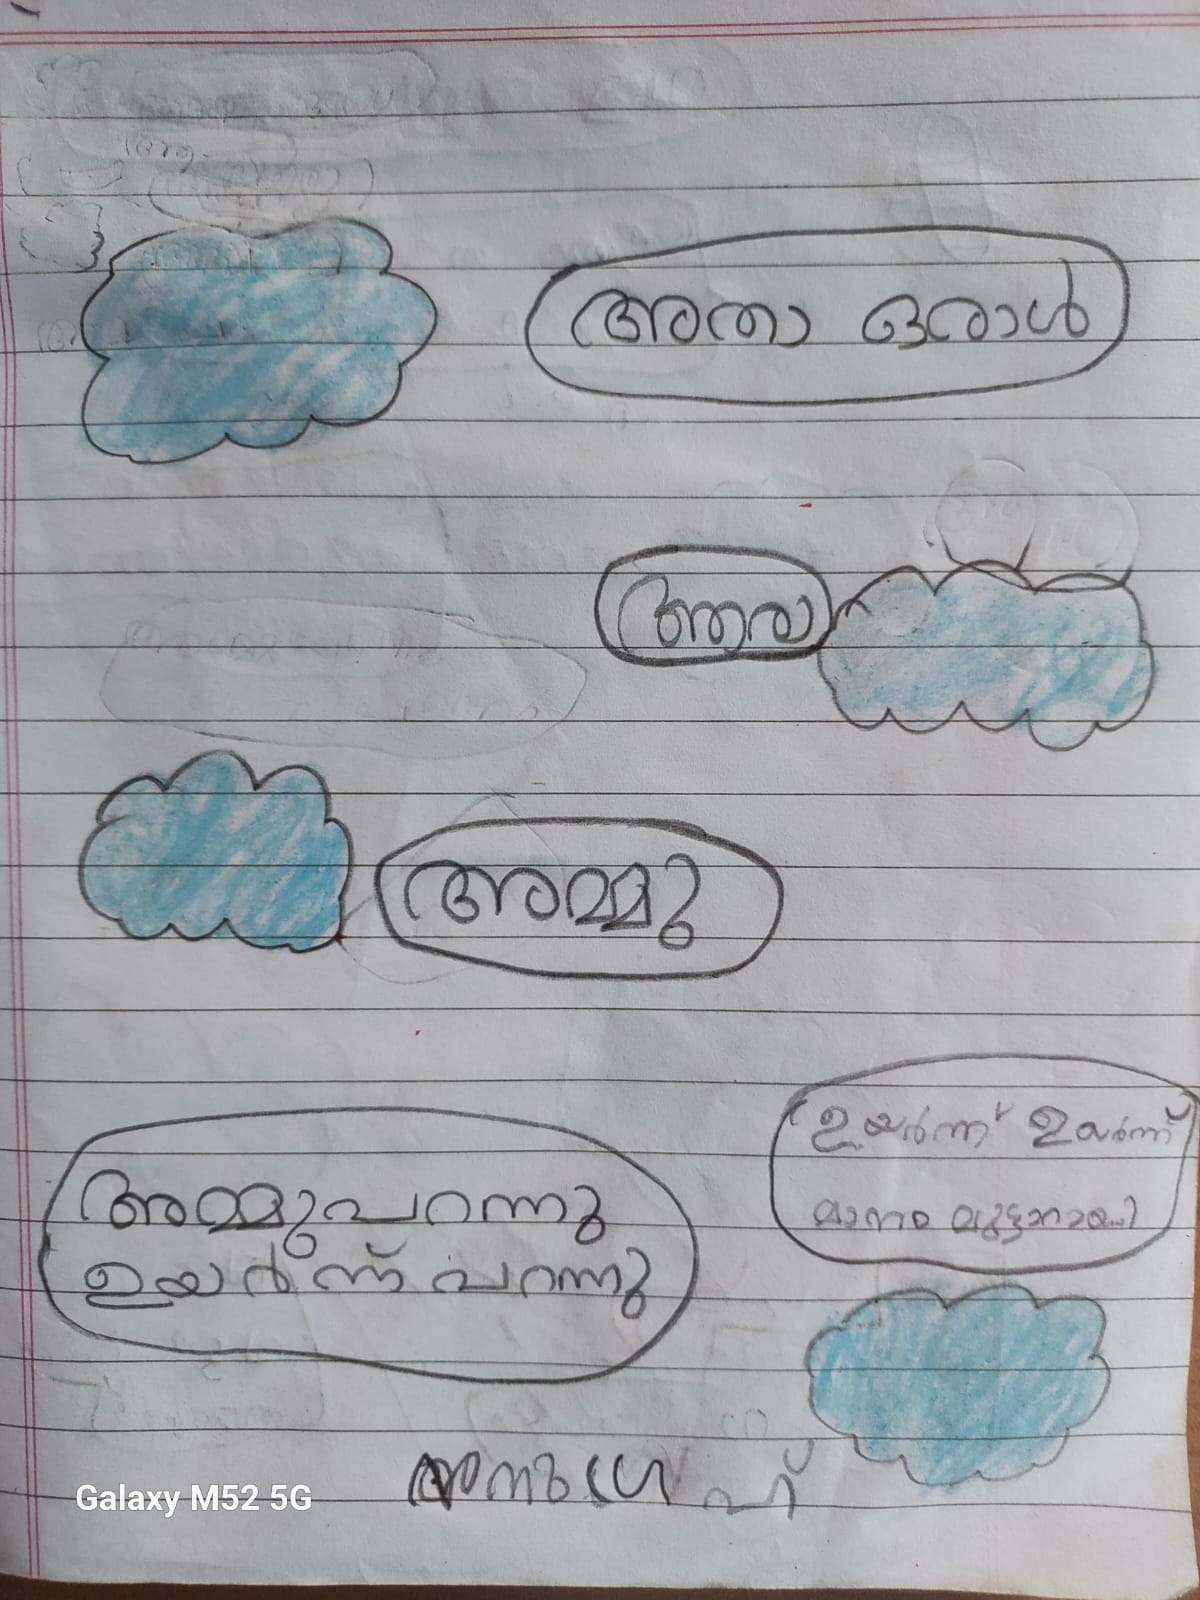 അതാ ഒരാൾ
ആരാ
അമ്മു
ഉയർന്ന് ഉയർന്ന്
മാനം മുട്ടാനായി
അമ്മുപറന്നു
ഉയർന്ന് പറന്നു
Galaxy M52 5G